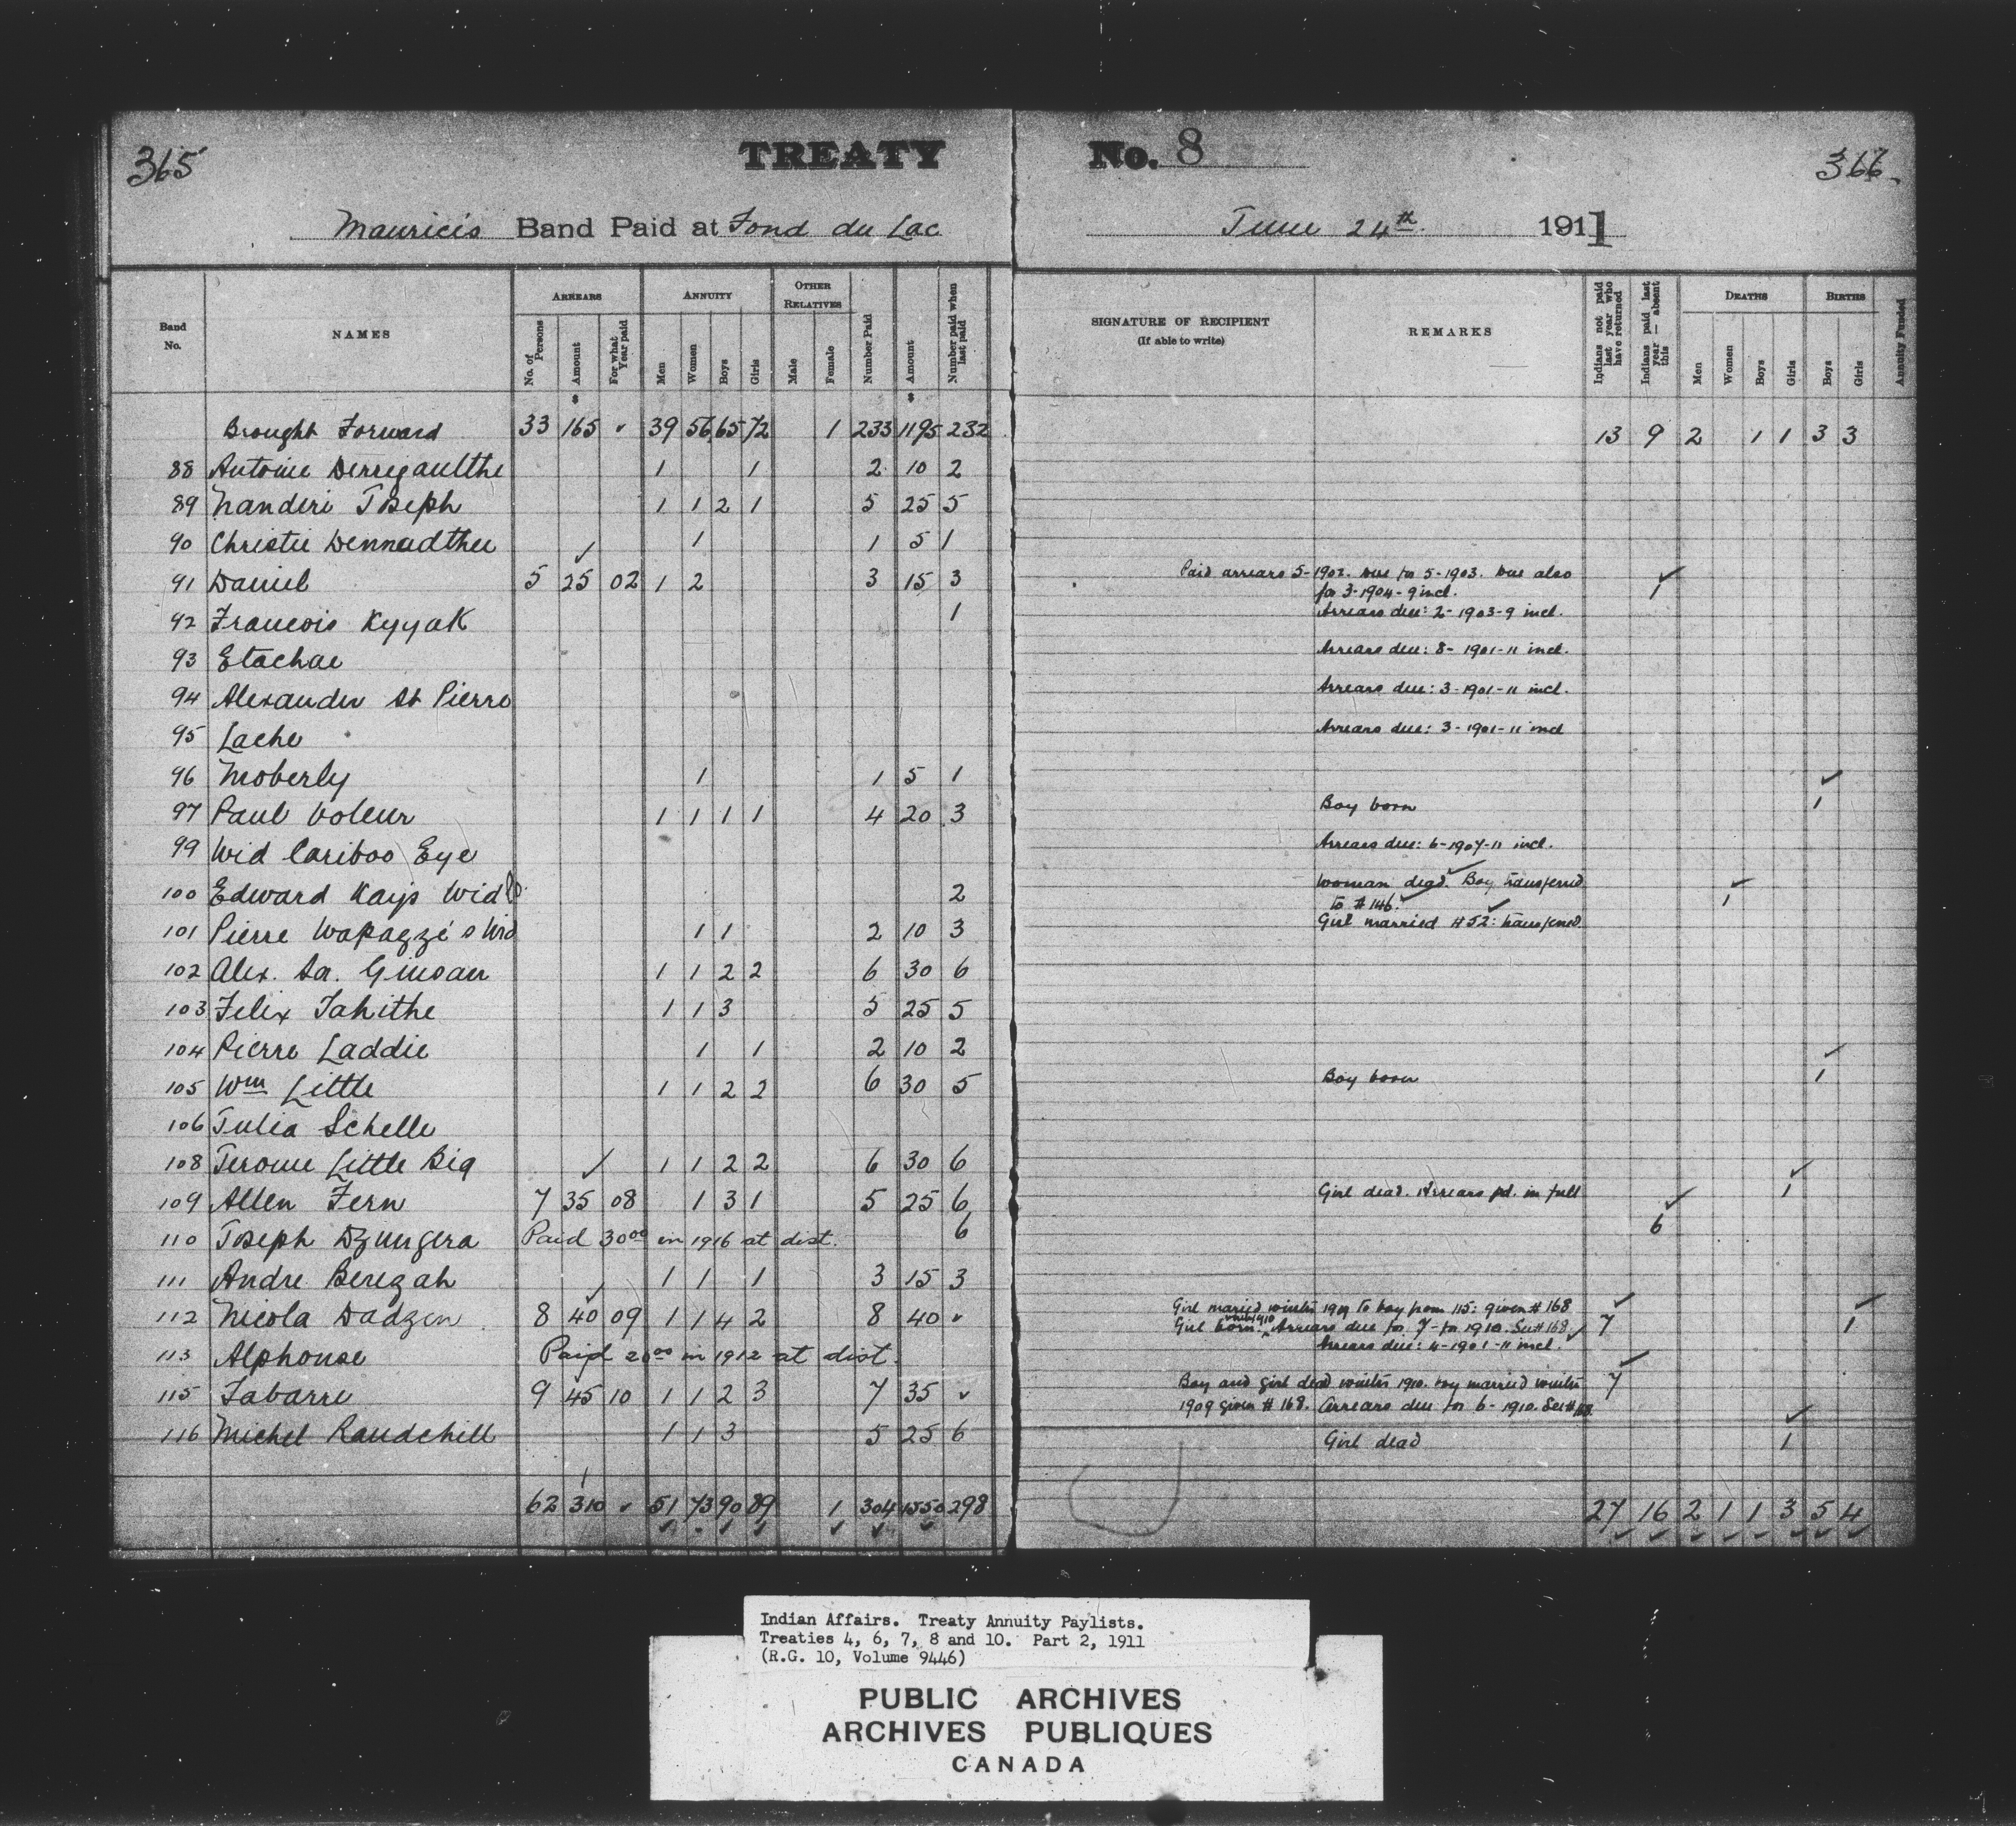 365
TREATY No. 8
366
Mauricis Band Paid at Fond du Lac June 24th 1911
Band No. NAMES ARREARS ANNUITY OTHER RELATIVES
No. of Persons Amount For what Year paid Men Women Boys Girls Male Female Number Paid Amount Number paid when last paid
SIGNATURE OF RECIPIENT (If able to write) REMARKS Indians not paid last year who have returned Indians paid last year — absent this DEATHS Men Women Boys Girls BIRTHS Boys Girls Annuity Funded
Brought Forward 33 165 ✓ 39 56 65 72 1 233 1195 232 13 9 2 1 1 3 3
88 Antoine Derregaulthe 1 1 2 10 2
89 Nanderi Joseph 1 1 2 1 5 25 5
90 Christie Dennadthee 1 1 5 1
91 Daniel 5 25 02 1 2 3 15 3 Paid arrears 5-1902. Due for 5-1903. Due also 1
for 3-1904-9 incl.
92 Francois Kyyak 1 Arrears due: 2-1903-9 incl.
93 Etachae Arrears due: 8-1901-11 incl.
94 Alexander St Pierre Arrears due: 3-1901-11 incl.
95 Lache Arrears due: 3-1901-11 incl
96 Moberly 1 1 5 1
97 Paul Voleur 1 1 1 1 4 20 3 Boy born 1
99 Wid Cariboo Eye Arrears due: 6-1907-11 incl.
100 Edward Kays Wid 2 Woman dead. Boy transferred 1
to #146.
101 Pierre Wapazzé's Wid 1 1 2 10 3 Girl married #52: transferred
102 Alex. Sa. Ginsan 1 1 2 2 6 30 6
103 Felix Tahithe 1 1 3 5 25 5
104 Pierre Laddie 1 1 2 10 2
105 Wm Little 1 1 2 2 6 30 5 Boy born 1
106 Julia Schelle
108 Jerome Little Big 1 1 2 2 6 30 6
109 Allen Fern 7 35 08 1 3 1 5 25 6 Girl dead. Arrears pd. in full 1
110 Joseph Dzungera Paid 30.00 in 1916 at dist. 6 6
111 Andre Berezah 1 1 1 3 15 3
112 Nicola Dadzen 8 40 09 1 1 4 2 8 40 ✓ Girl married winter 1909 to boy from 115: given #168
Girl born winter 1910. Arrears due for 7-for 1910. See #168. ✓ 7 1
113 Alphonse Paid 20.00 in 1912 at dist. Arrears due: 4-1901-11 incl.
115 Tabarre 9 45 10 1 1 2 3 7 35 ✓ Boy and girl dead winter 1910. boy married winter 7
1909 given #168. Arrears due for 6-1910. See #168.
116 Michel Raudchill 1 1 3 5 25 6 Girl dead 1
62 310 ✓ 51 73 90 89 1 304 1550 298 27 16 2 1 1 3 5 4
Indian Affairs. Treaty Annuity Paylists.
Treaties 4, 6, 7, 8 and 10. Part 2, 1911
(R.G. 10, Volume 9446)
PUBLIC ARCHIVES
ARCHIVES PUBLIQUES
CANADA